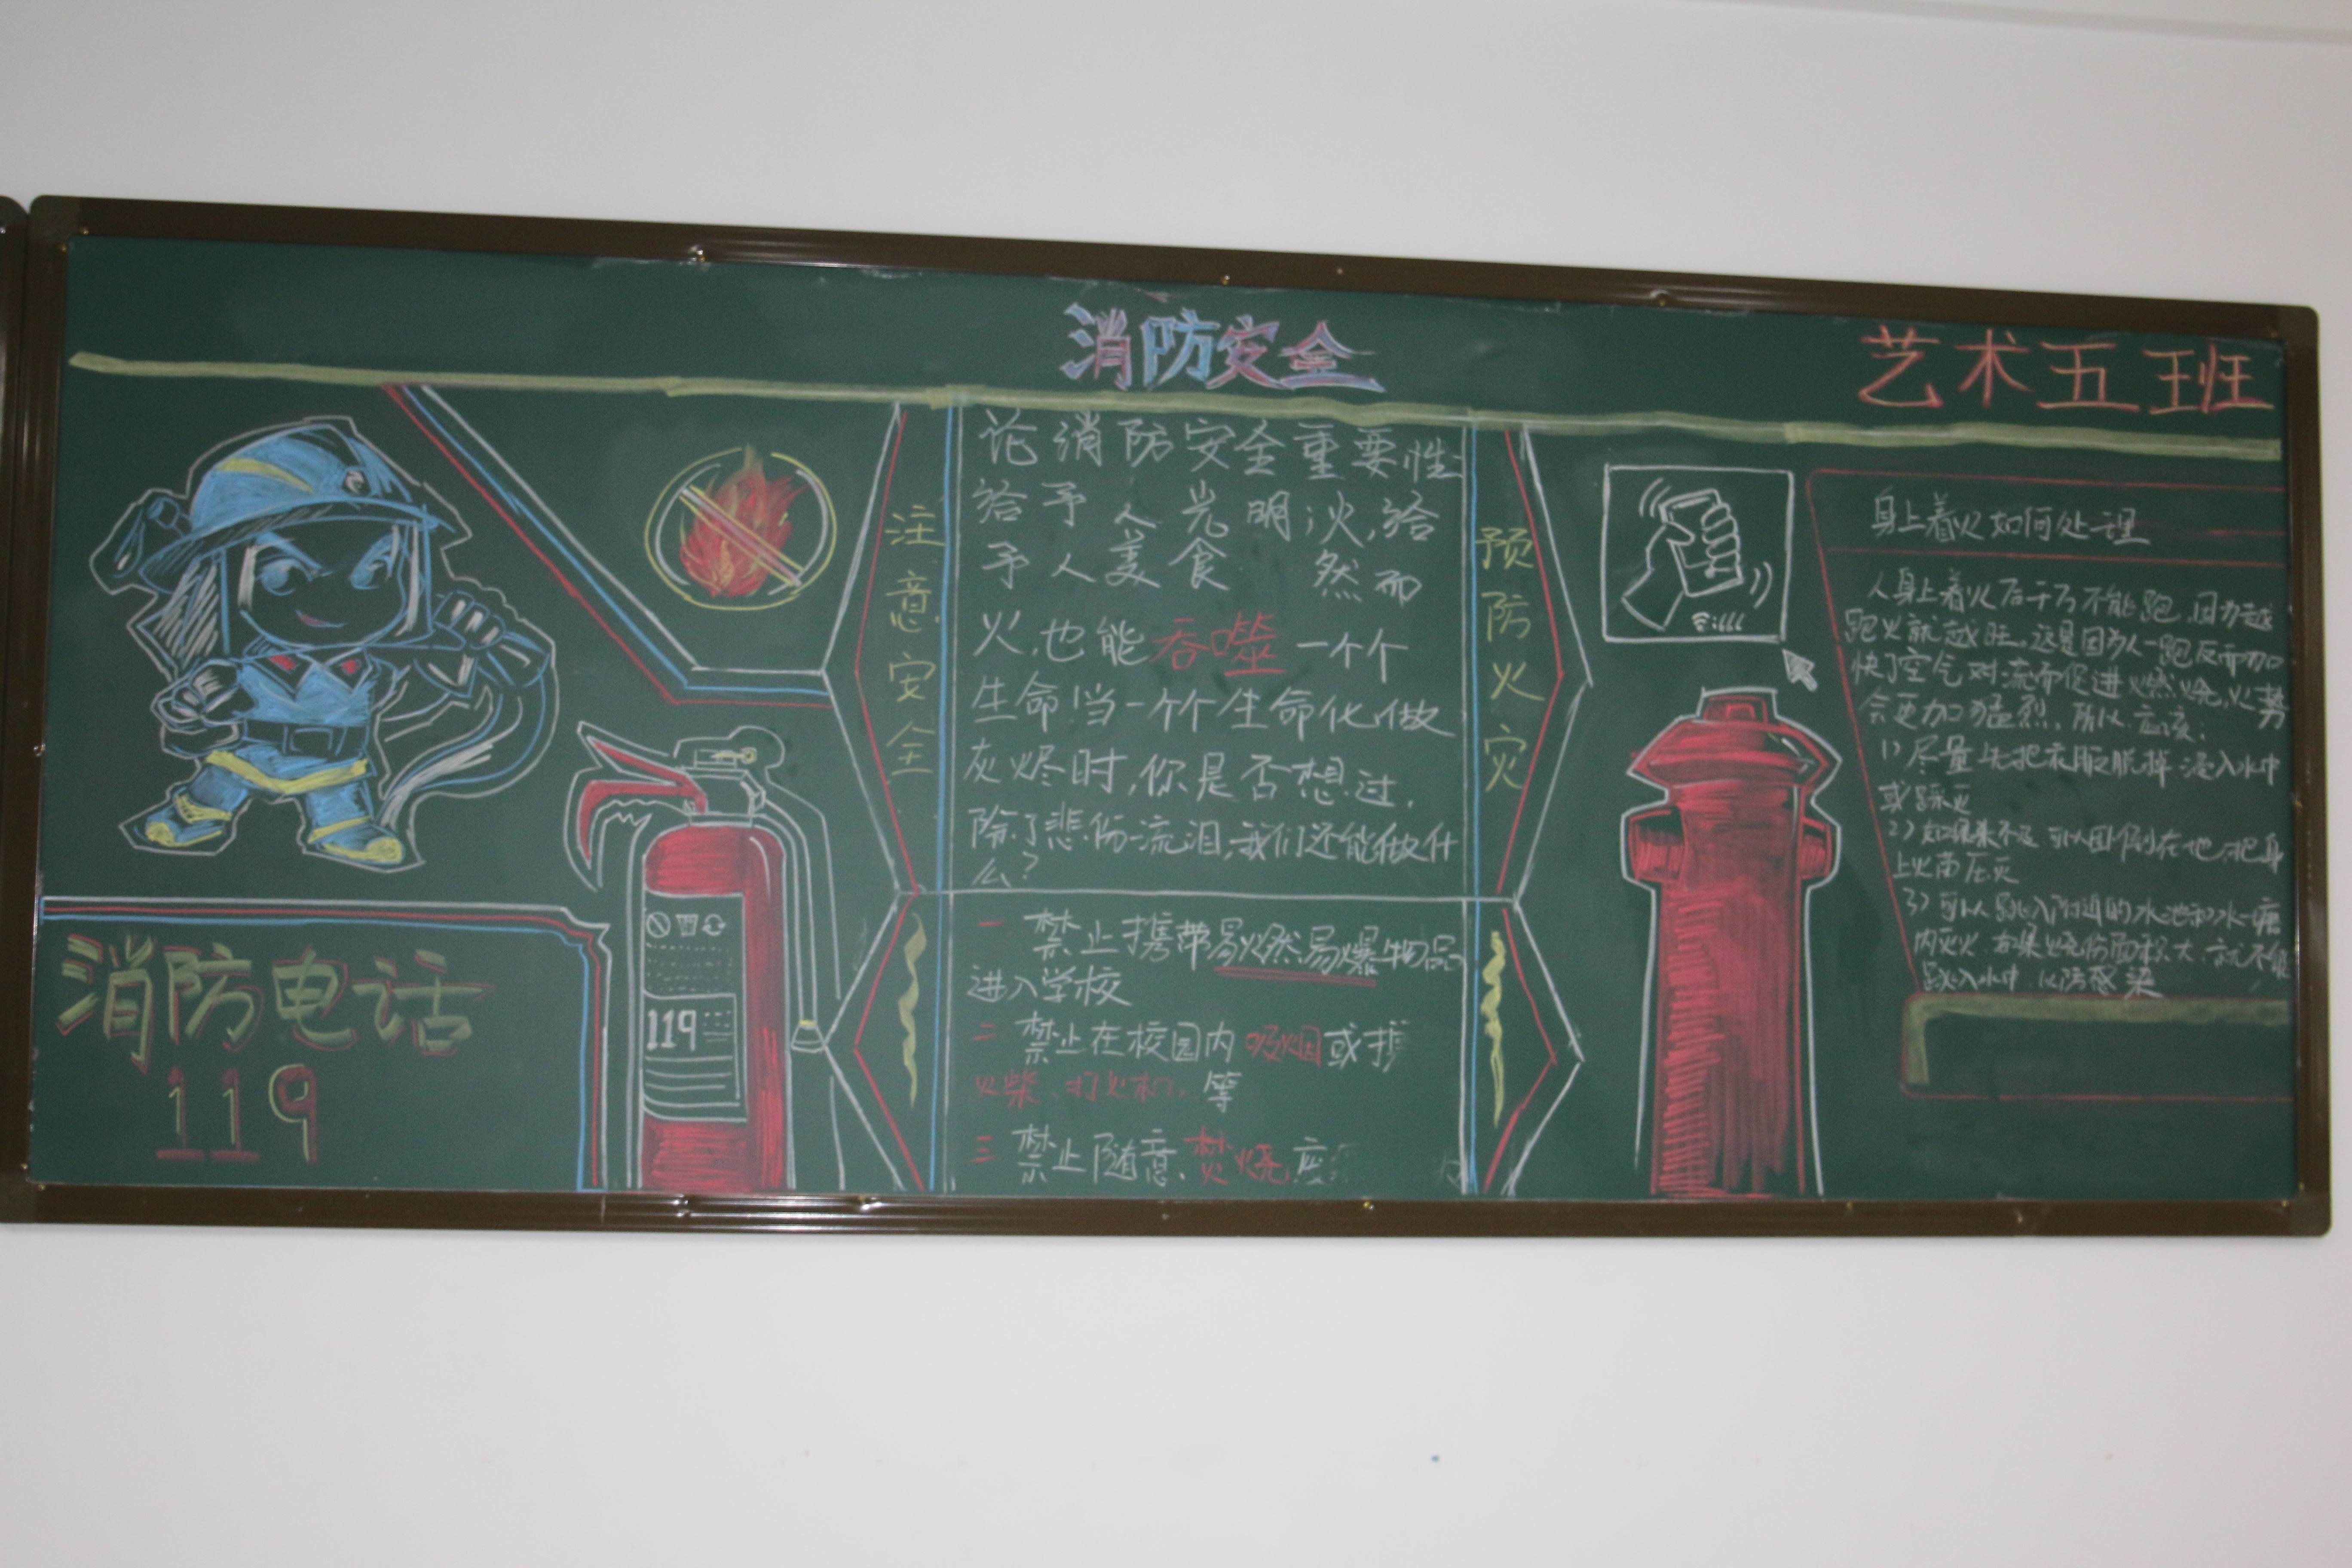 消防安全
艺术五班
消防电话
119
119
注意安全
论消防安全重要性
给予人光明火,给
予人美食 然而
火,也能吞噬一个个
生命当一个个生命化做
灰烬时,你是否想过,
除了悲伤流泪,我们还能做什
么?
一 禁止携带易燃易爆物品
进入学校
二 禁止在校园内吸烟或携
火柴、打火机、等
三 禁止随意焚烧
预防火灾
身上着火如何处理
人身上着火后千万不能跑,因为越
跑火就越旺,这是因为人一跑反而加
快了空气对流而促进燃烧,火势
会更加猛烈,所以应该:
1)尽量先把衣服脱掉浸入水中
或踩灭
2)如果来不及可以卧倒在地,把身
上火苗压灭
3)可以跳入附近的水池和水塘
内灭火,如果烧伤面积大,就不能
跳入水中,以防感染